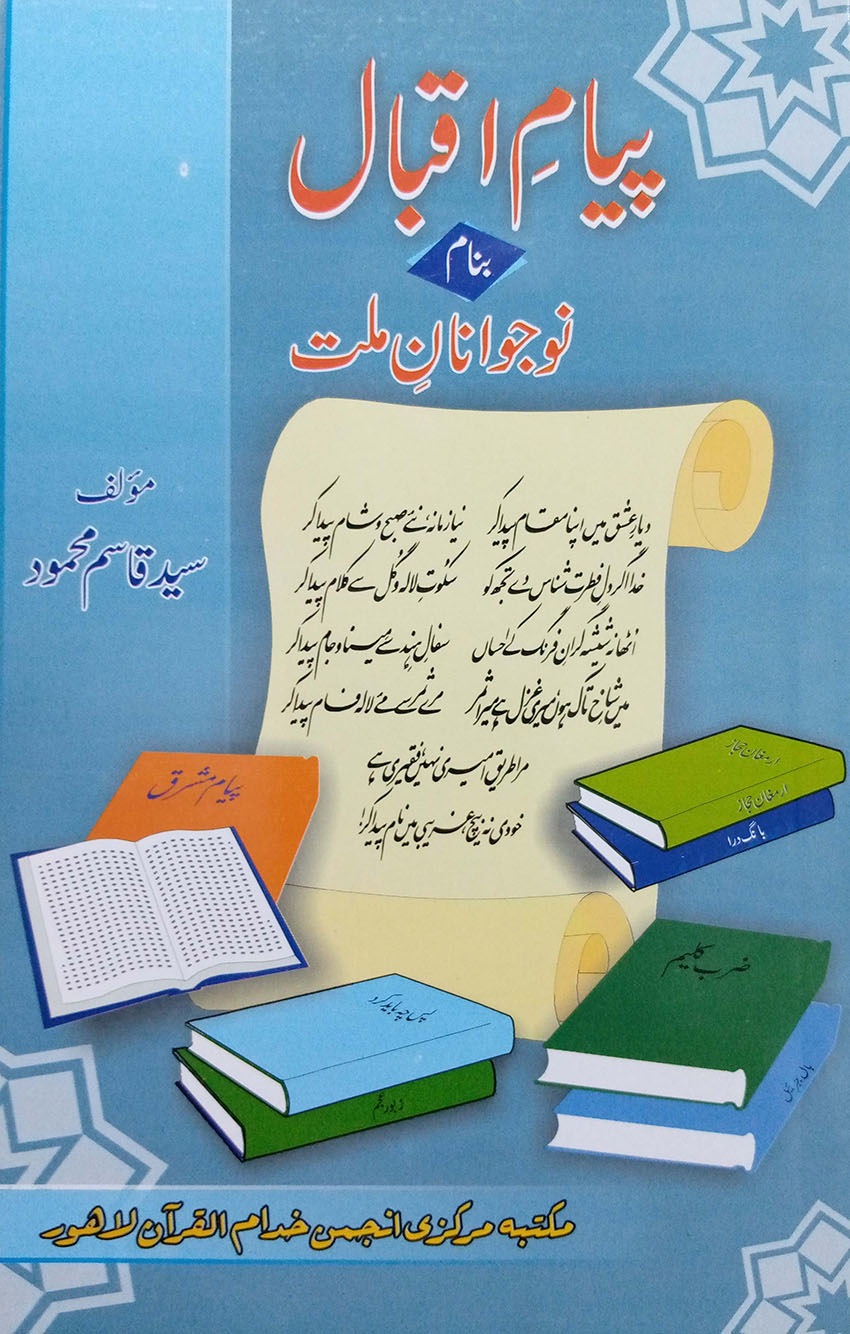 پیامِ اقبال
بنام
نوجوانانِ ملت
مؤلف
سید قاسم محمود
دیارِ عشق میں اپنا مقام پیدا کر نیا زمانہ، نئے صبح و شام پیدا کر
خدا اگر دلِ فطرت شناس دے تجھ کو سکوتِ لالہ و گُل سے کلام پیدا کر
اٹھا نہ شیشہ گرانِ فرنگ کے احساں سفالِ ہند سے مینا و جام پیدا کر
میں شاخِ تاک ہوں، میری غزل ہے میرا ثمر مرے ثمر سے مئے لالہ فام پیدا کر
مرا طریق امیری نہیں، فقیری ہے
خودی نہ بیچ، غریبی میں نام پیدا کر!
پیام مشرق
ارمغان حجاز
ارمغان حجاز
بانگ درا
ضرب کلیم
بال جبریل
پس چہ باید کرد
زبور عجم
مکتبہ مرکزی انجمن خدام القرآن لاہور